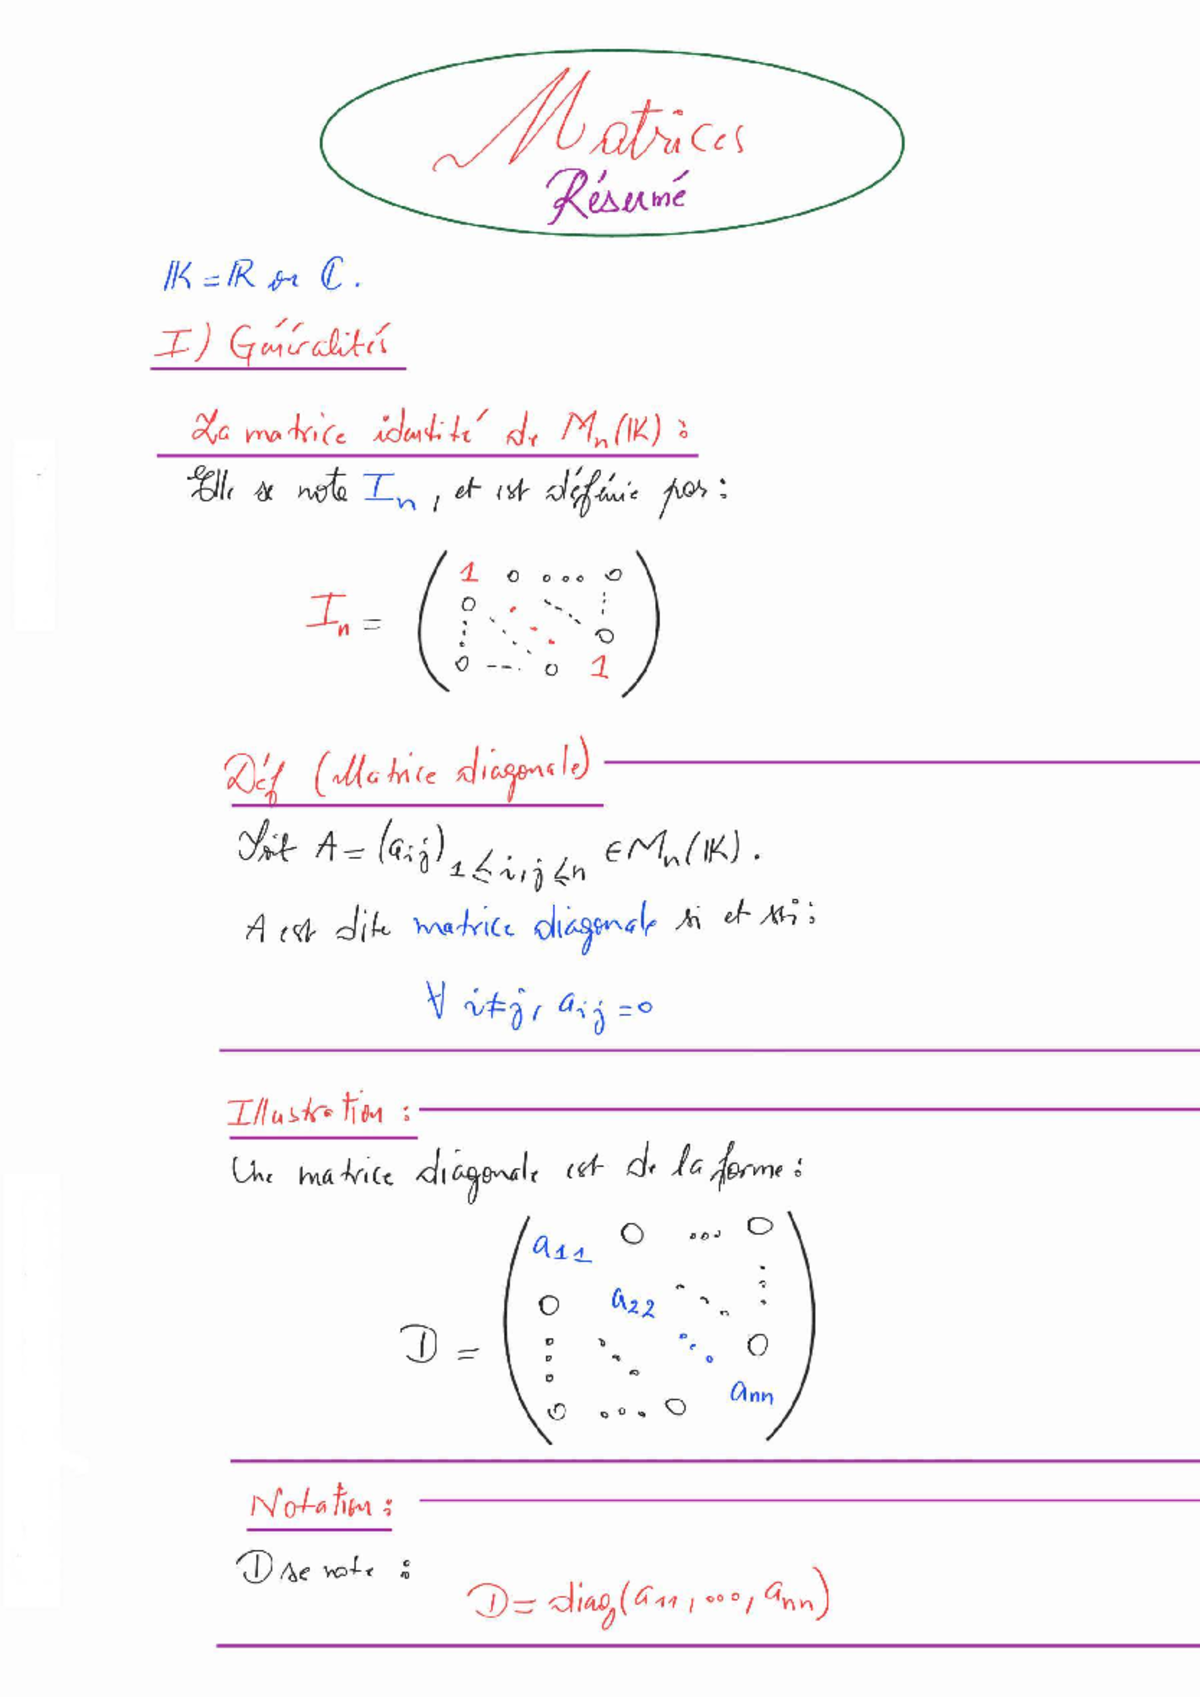 Matrices
Résumé
𝕂 = ℝ ou ℂ.
I) Généralités
La matrice identité de Mₙ(𝕂) :
Elle se note Iₙ, et est définie par :
Iₙ = ( 1 0 ... 0
0 ⋱ ⋱ ⋮
⋮ ⋱ ⋱ 0
0 ... 0 1 )
Déf (Matrice diagonale)
Soit A = (aᵢⱼ) 1≤i,j≤n ∈ Mₙ(𝕂).
A est dite matrice diagonale si et ssi :
∀ i≠j, aᵢⱼ = 0
Illustration :
Une matrice diagonale est de la forme :
D = ( a₁₁ 0 ... 0
0 a₂₂ ⋱ ⋮
⋮ ⋱ ⋱ 0
0 ... 0 aₙₙ )
Notation :
D se note :
D = diag(a₁₁, ..., aₙₙ)